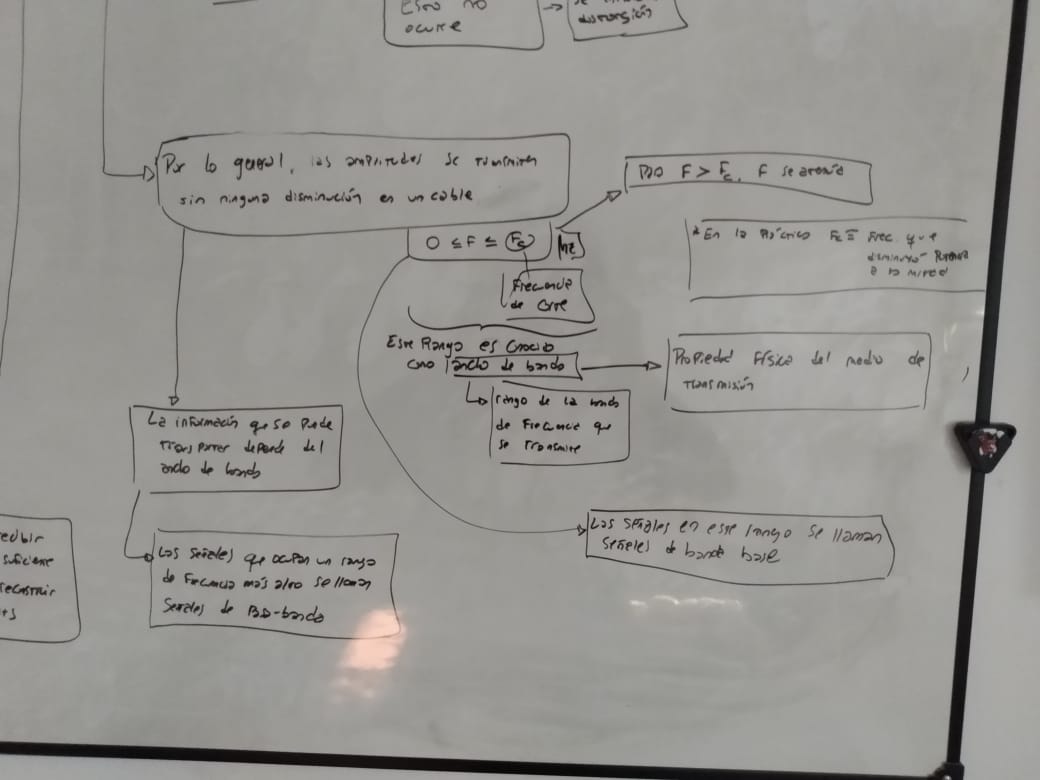 Esto no
ocurre
distorsión
Por lo general, las amplitudes se transmiten
sin ninguna disminución en un cable
0 ≤ F ≤ Fc
Hz
Frecuencia
de corte
Para F > Fc, F se atenúa
* En la Práctica Fc ≡ Frec. que
disminuye Potencia
a la mitad
Este Rango es conocido
como ancho de banda
Propiedad Física del medio de
Transmisión
rango de la banda
de Frecuencia que
se Transmite
La información que se puede
Transportar depende del
ancho de banda
Las señales que ocupan un rango
de Frecuencia más alto se llaman
Señales de Pasa-banda
Las señales en ese rango se llaman
señales de banda base
suficiente
reconstruir